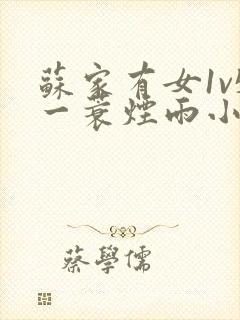 蘇家有女1v
一蓑煙雨小
蔡學儒